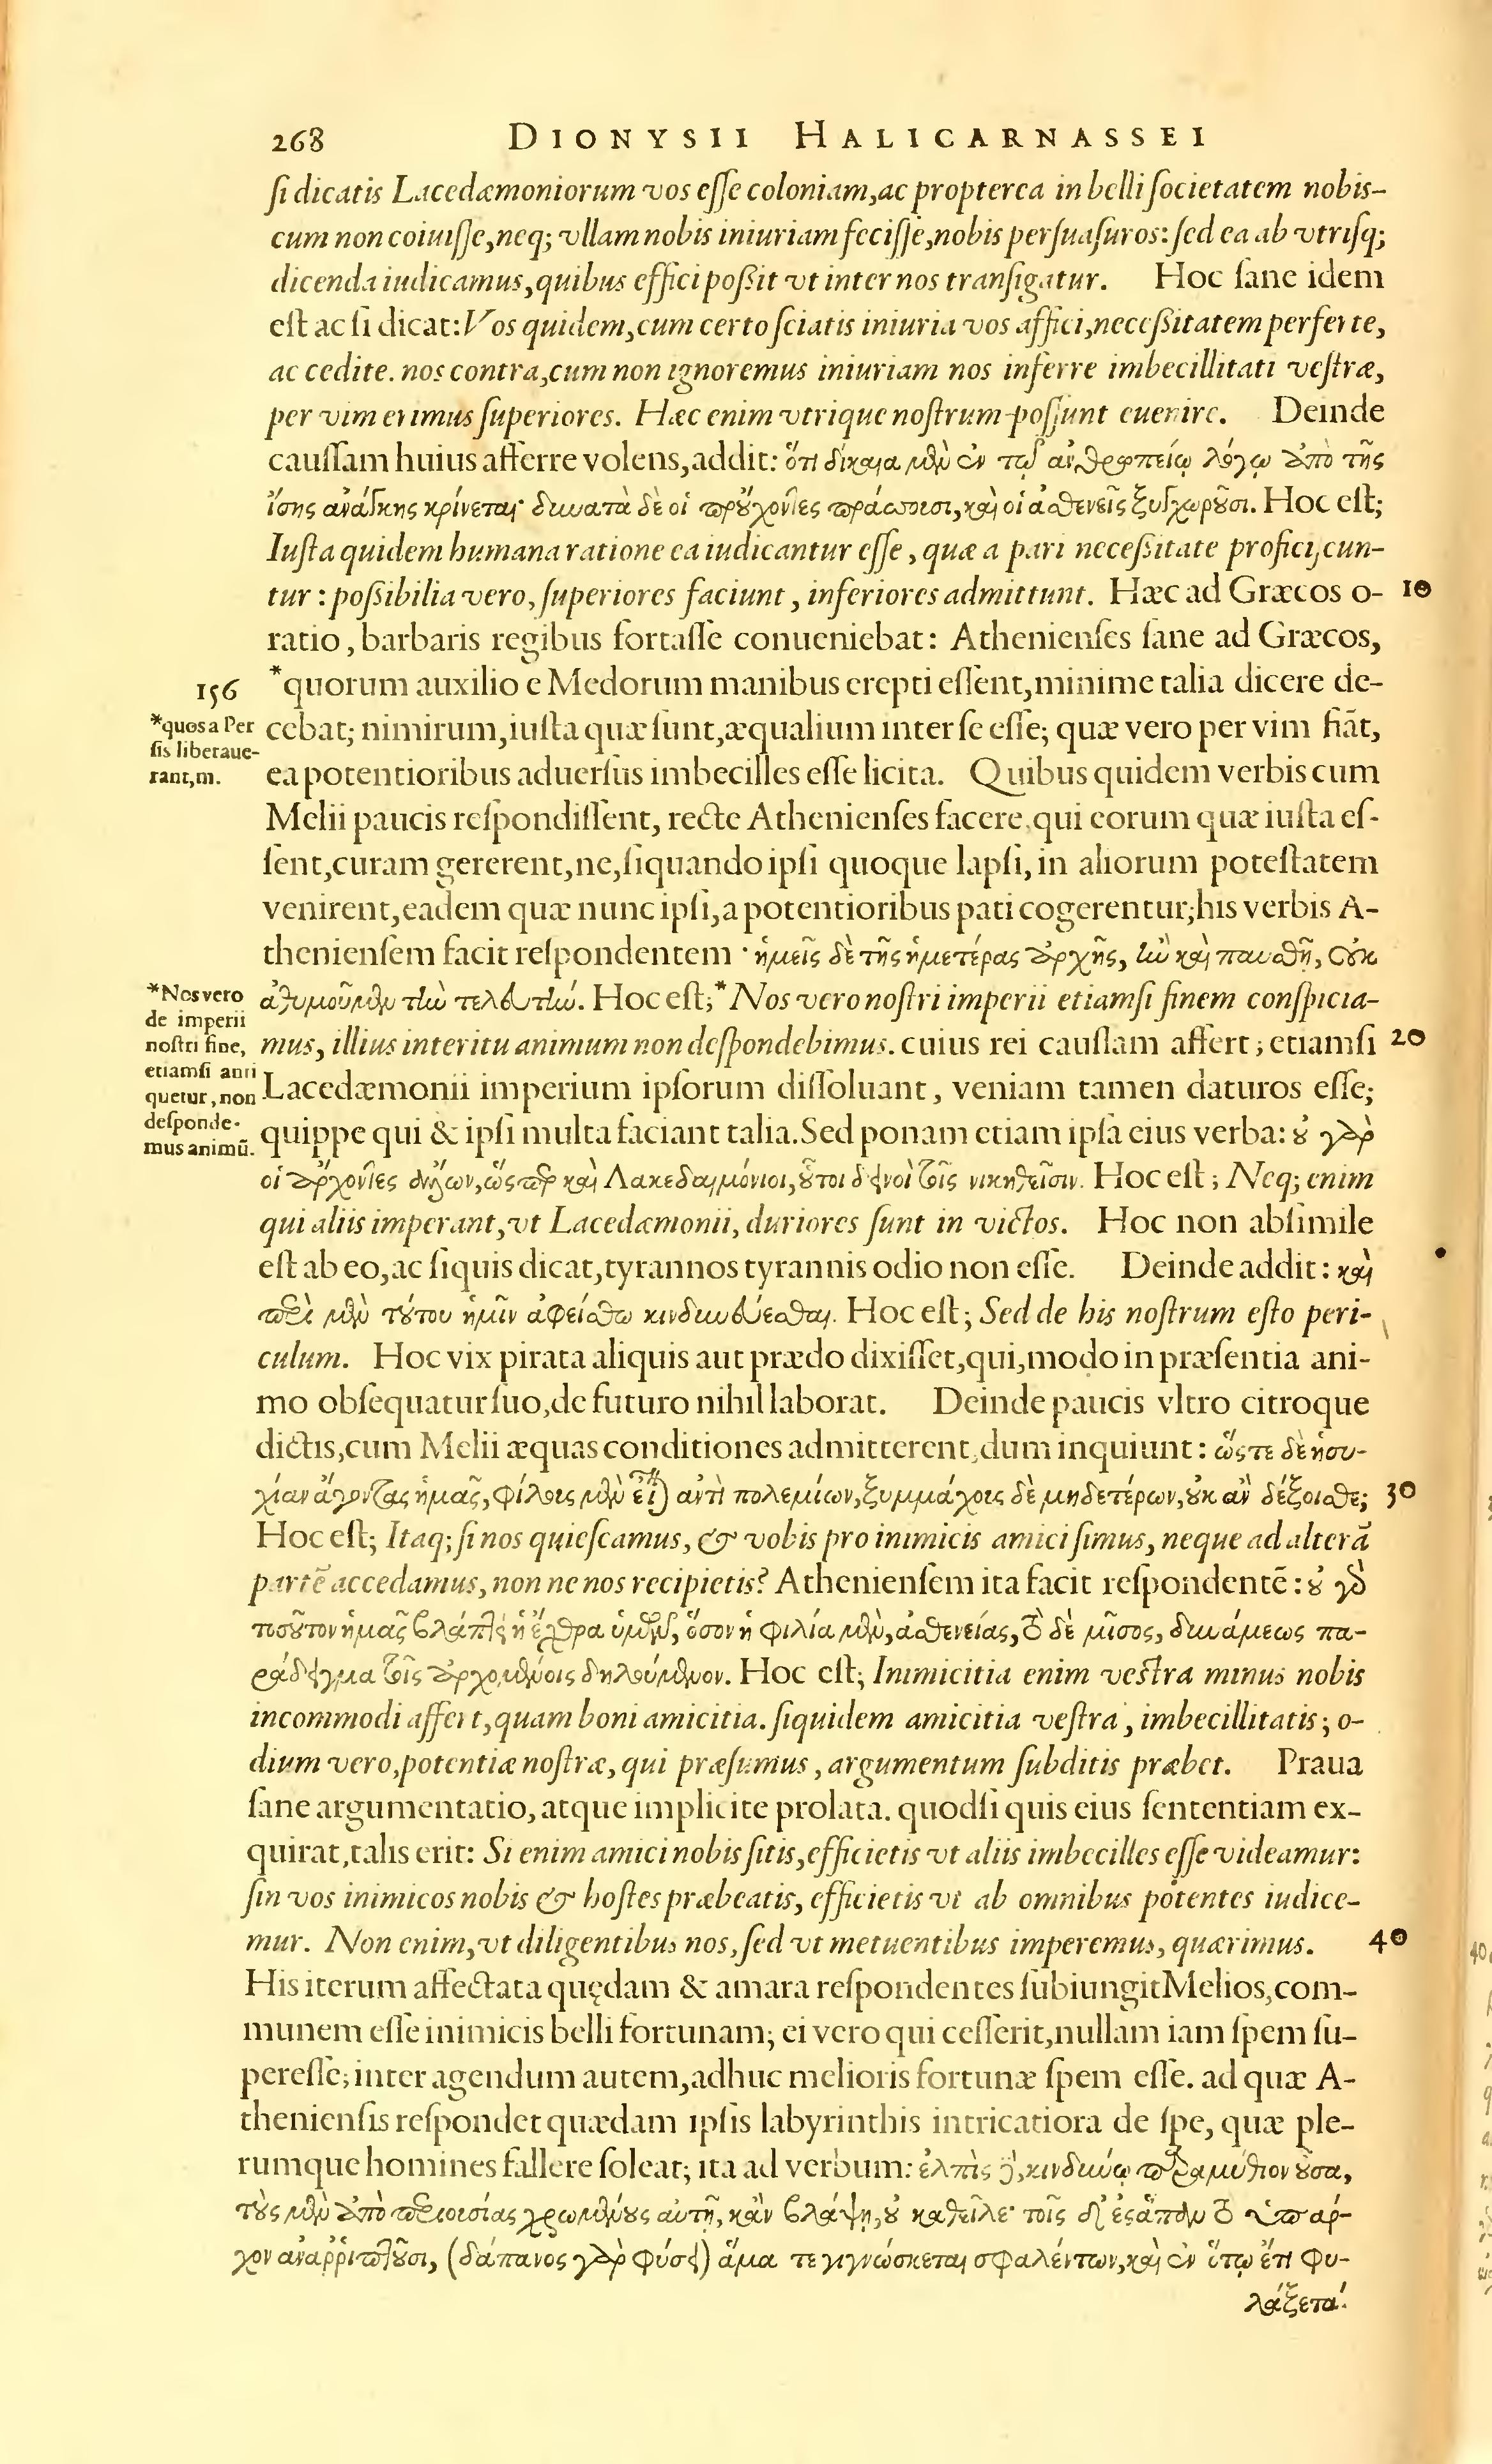 268 DIONYSII HALICARNASSEI
ſi dicatis Lacedæmoniorum vos eſſe coloniam, ac propterea in belli ſocietatem nobis-
cum non coiuiſſe, neq; vllam nobis iniuriam feciſſe, nobis perſuaſuros: ſed ea ab vtriſq;
dicenda iudicamus, quibus effici poßit vt inter nos tranſigatur. Hoc ſane idem
eſt ac ſi dicat: Vos quidem, cum certo ſciatis iniuria vos affici, neceßitatem perferte,
ac cedite. nos contra, cum non ignoremus iniuriam nos inferre imbecillitati veſtræ,
per vim erimus ſuperiores. Hæc enim vtrique noſtrum poſſunt euenire. Deinde
cauſſam huius afferre volens, addit: ὅτι δίκαια μὲν ἐν τῷ ἀνθρωπείῳ λόγῳ ἀπὸ τῆς
ἴσης ἀνάγκης κρίνεται· δυνατὰ δὲ οἱ προύχοντες πράσσουσι, καὶ οἱ ἀσθενεῖς ξυγχωροῦσι. Hoc eſt;
Iuſta quidem humana ratione ea iudicantur eſſe, quæ a pari neceßitate proficiſcun-
tur: poßibilia vero, ſuperiores faciunt, inferiores admittunt. Hæc ad Græcos o- 10
ratio, barbaris regibus fortaſſe conueniebat: Athenienſes ſane ad Græcos,
156 *quorum auxilio e Medorum manibus erepti eſſent, minime talia dicere de-
*quos a Per
ſis liberaue-
rant, m.
cebat; nimirum, iuſta quæ ſunt, æqualium inter ſe eſſe; quæ vero per vim fiāt,
ea potentioribus aduerſus imbecilles eſſe licita. Quibus quidem verbis cum
Melii paucis reſpondiſſent, recte Athenienſes facere, qui eorum quæ iuſta eſ-
ſent, curam gererent, ne, ſiquando ipſi quoque lapſi, in aliorum poteſtatem
venirent, eadem quæ nunc ipſi, a potentioribus pati cogerentur; his verbis A-
thenienſem facit reſpondentem · ἡμεῖς δὲ τῆς ἡμετέρας ἀρχῆς, ἢν καὶ παυθῇ, οὐκ
*Nos vero
de imperii
noſtri fine,
etiamſi anti
quetur, non
deſponde-
mus animū.
ἀθυμοῦμεν τὴν τελευτήν. Hoc eſt; *Nos vero noſtri imperii etiamſi finem conſpicia-
mus, illius interitu animum non deſpondebimus. cuius rei cauſſam affert; etiamſi 20
Lacedæmonii imperium ipſorum diſſoluant, veniam tamen daturos eſſe;
quippe qui & ipſi multa faciant talia. Sed ponam etiam ipſa eius verba: οὐ γὰρ
οἱ ἄρχοντες ἄλλων, ὥσπερ καὶ Λακεδαιμόνιοι, οὗτοι δεινοὶ τοῖς νικηθεῖσιν. Hoc eſt; Neq; enim
qui aliis imperant, vt Lacedæmonii, duriores ſunt in victos. Hoc non abſimile
eſt ab eo, ac ſiquis dicat, tyrannos tyrannis odio non eſſe. Deinde addit: καὶ
περὶ μὲν τούτου ἡμῖν ἀφείσθω κινδυνεύεσθαι. Hoc eſt; Sed de his noſtrum eſto peri-
culum. Hoc vix pirata aliquis aut prædo dixiſſet, qui, modo in præſentia ani-
mo obſequatur ſuo, de futuro nihil laborat. Deinde paucis vltro citroque
dictis, cum Melii æquas conditiones admitterent, dum inquiunt: ὥστε δὲ ἡσυ-
χίαν ἄγοντας ἡμᾶς, φίλους μὲν εἶναι ἀντὶ πολεμίων, ξυμμάχους δὲ μηδετέρων, οὐκ ἂν δέξοισθε; 30
Hoc eſt; Itaq; ſi nos quieſcamus, & vobis pro inimicis amici ſimus, neque ad alterā
partē accedamus, non ne nos recipietis? Athenienſem ita facit reſpondentē: οὐ γὰρ
τοσοῦτον ἡμᾶς βλάπτει ἡ ἔχθρα ὑμῶν, ὅσον ἡ φιλία μὲν, ἀσθενείας, τὸ δὲ μῖσος, δυνάμεως πα-
ράδειγμα τοῖς ἀρχομένοις δηλούμενον. Hoc eſt; Inimicitia enim veſtra minus nobis
incommodi affert, quam boni amicitia. ſiquidem amicitia veſtra, imbecillitatis; o-
dium vero, potentiæ noſtræ, qui præſumus, argumentum ſubditis præbet. Praua
ſane argumentatio, atque implicite prolata. quodſi quis eius ſententiam ex-
quirat, talis erit: Si enim amici nobis ſitis, efficietis vt aliis imbecilles eſſe videamur:
ſin vos inimicos nobis & hoſtes præbeatis, efficietis vt ab omnibus potentes iudice-
mur. Non enim, vt diligentibus nos, ſed vt metuentibus imperemus, quærimus. 40
His iterum affectata quędam & amara reſpondentes ſubiungit Melios, com-
munem eſſe inimicis belli fortunam; ei vero qui ceſſerit, nullam iam ſpem ſu-
pereſſe; inter agendum autem, adhuc melioris fortunæ ſpem eſſe. ad quæ A-
thenienſis reſpondet quædam ipſis labyrinthis intricatiora de ſpe, quæ ple-
rumque homines fallere ſoleat; ita ad verbum: ἐλπὶς δὲ, κινδύνῳ παραμύθιον οὖσα,
τοὺς μὲν ἀπὸ περιουσίας χρωμένους αὐτῇ, κἂν βλάψῃ, οὐ καθεῖλε· τοῖς δ' ἐς ἅπαν τὸ ὑπάρ-
χον ἀναῤῥιπτοῦσι, (δάπανος γὰρ φύσει) ἅμα τε γιγνώσκεται σφαλέντων, καὶ ἐν ὅτῳ ἔτι φυ-
λάξεται